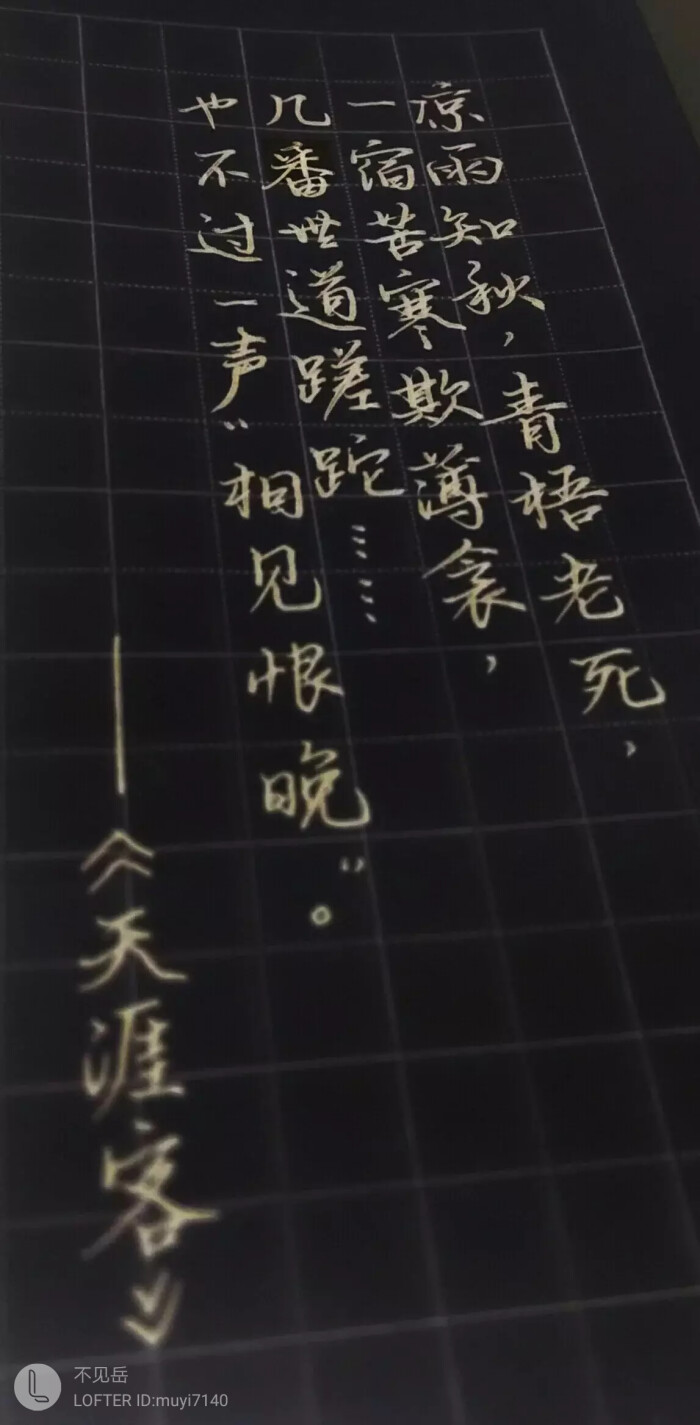 凉雨知秋，青梧老死，
一宿苦寒欺薄衾，
几番世道蹉跎……
也不过一声“相见恨晚”。
——《天涯客》
不见岳
LOFTER ID:muyi7140